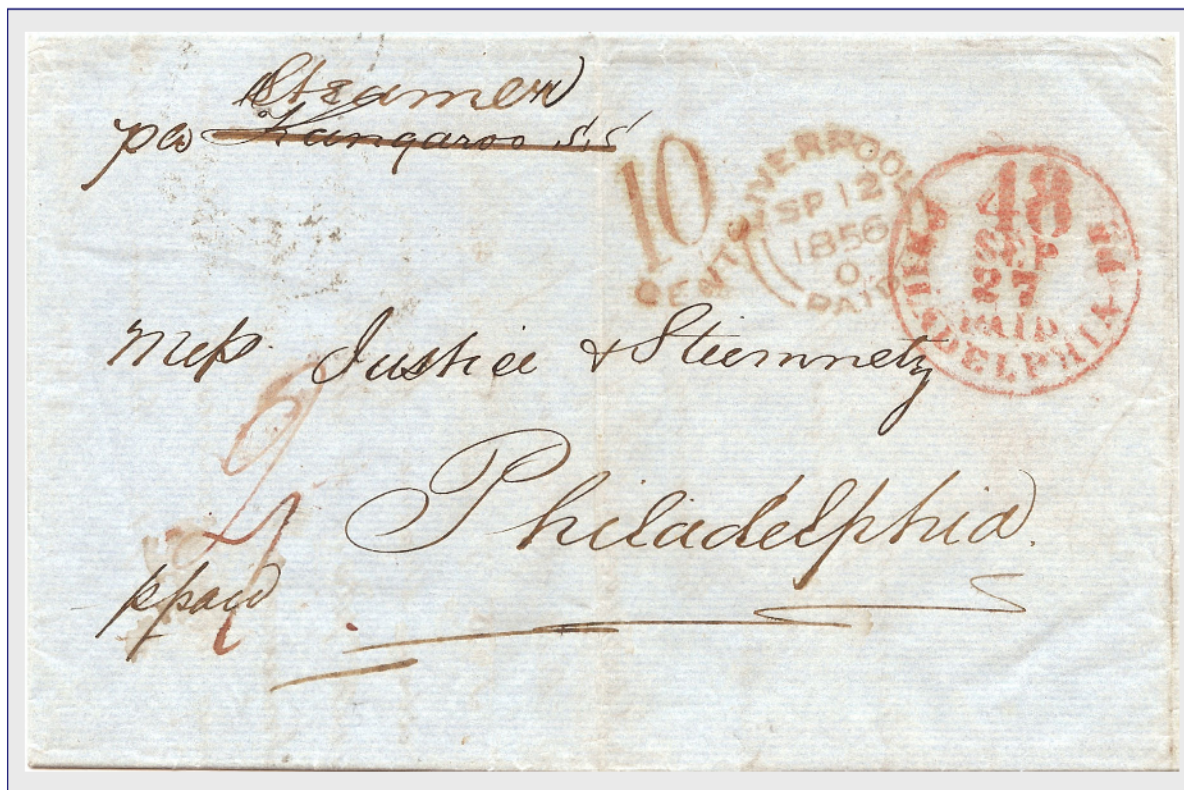 Steamer
per Kangaroo S.S
10 CENTS
LIVERPOOL
SP 12
1856
O
PAID
48
SEP
27
PAID
PHILADELPHIA Pa
Justice & Steinmetz
Philadelphia.
ppaid